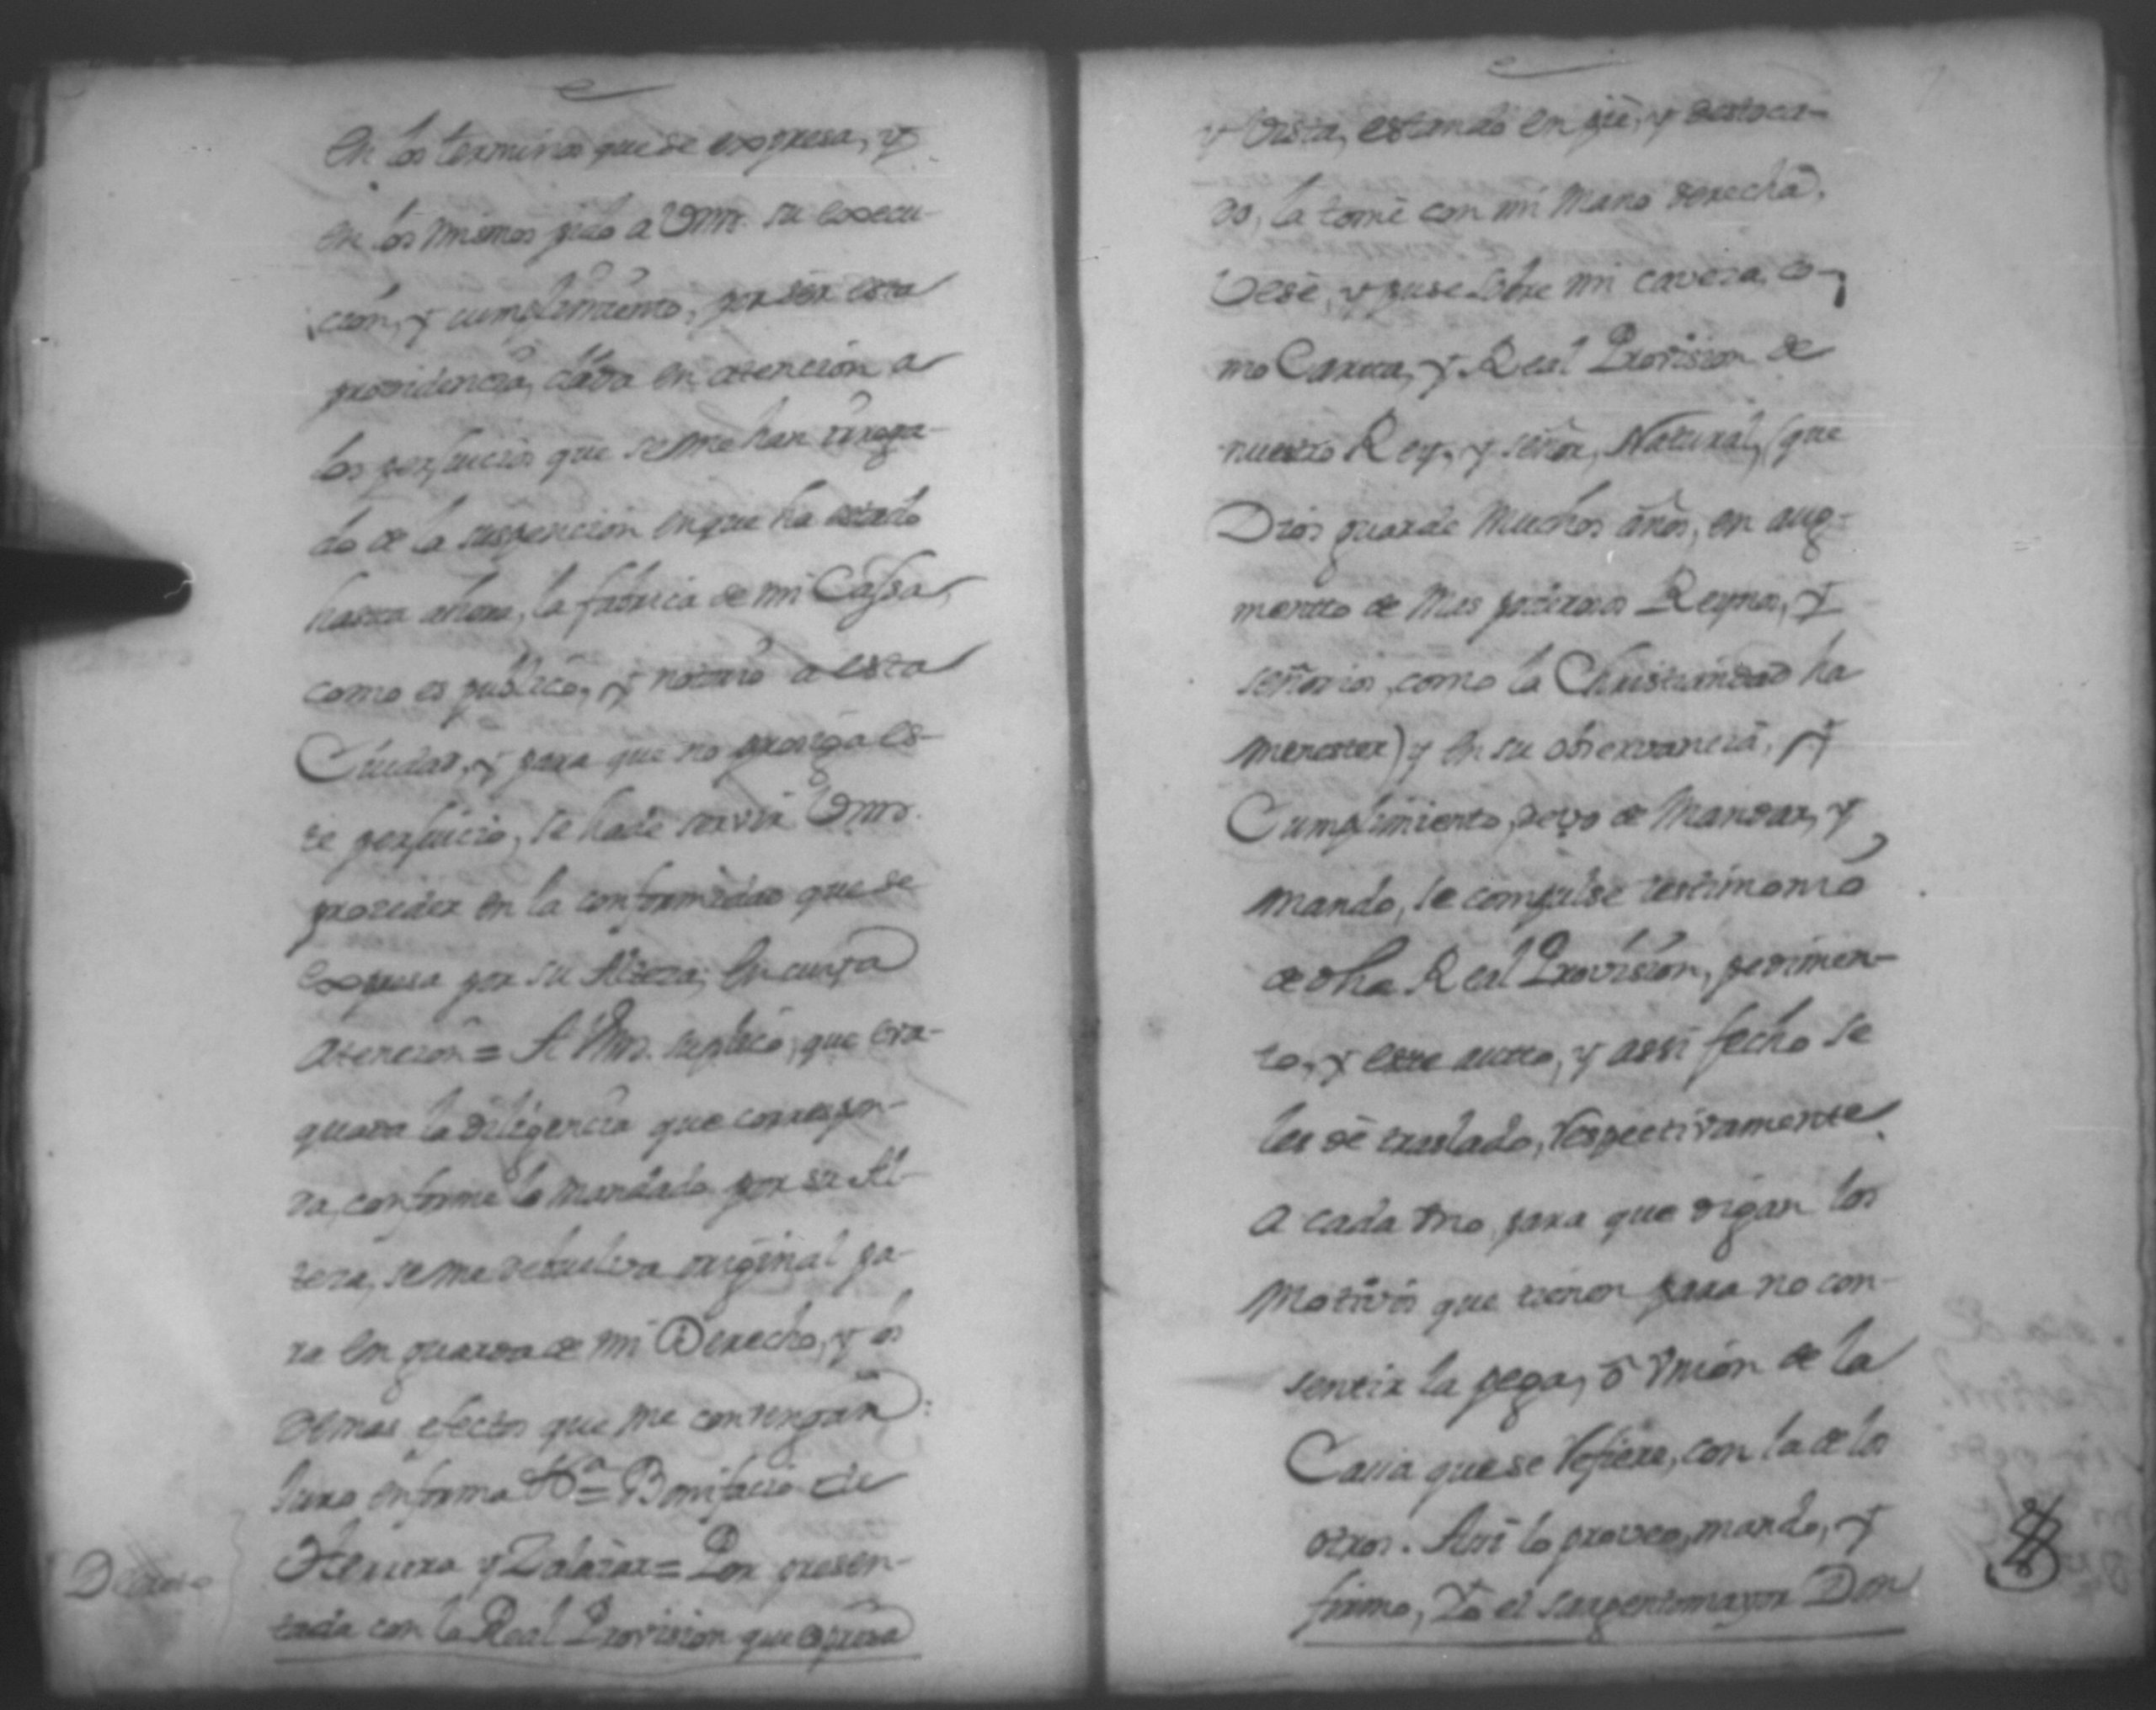 en los terminos que se expresa, y
en los mismos pido a Vmr. su execu-
cion, y cumplimiento, por ser esta
providencia, dada en atencion a
los perjuicios que se me han irroga-
do de la suspencion en que ha estado
hasta ahora, la fabrica de mi Cassa,
como es publico, y notorio a esta
Ciudad, y para que no prosiga es-
te perjuicio, se hade servir Vmr.
proceder en la conformidad que se
expresa por su Alteza; En cuya
atencion = A Vmr. suplico, que eva-
quada la diligencia que correspon-
da, conforme lo mandado por su Al-
teza, se me debuelva original pa-
ra en guarda de mi Derecho, y los
demas efectos que me convengan:
Juro en forma Bonifacio de
Herrera y Zalazar = Por presen-
Decreto
tada con la Real Provision que expresa
y vista, estando en pie, y destoca-
do, la tomé con mi mano derecha,
vesé, y puse sobre mi caveza, co-
mo Cartta, y Real Provision de
nuestro Rey, y señor, Natural, (que
Dios guarde muchos años, en aug-
mentto de mas Reynos, y
señorios, como la Christiandad ha
menester) y en su observancia, y
Cumplimiento, devo de mandar, y
mando, se compulse testimonio
de dha Real Provision, pedimen-
to, y este autto, y assi fecho se
les dé traslado, respectivamente
a cada vno, para que digan los
motivos que tienen para no con-
sentir la pega, ó vnion de la
Cassa que se refiere, con la de los
otros. Asi lo proveo, mando, y
firmo, Yo el sargentomayor Don